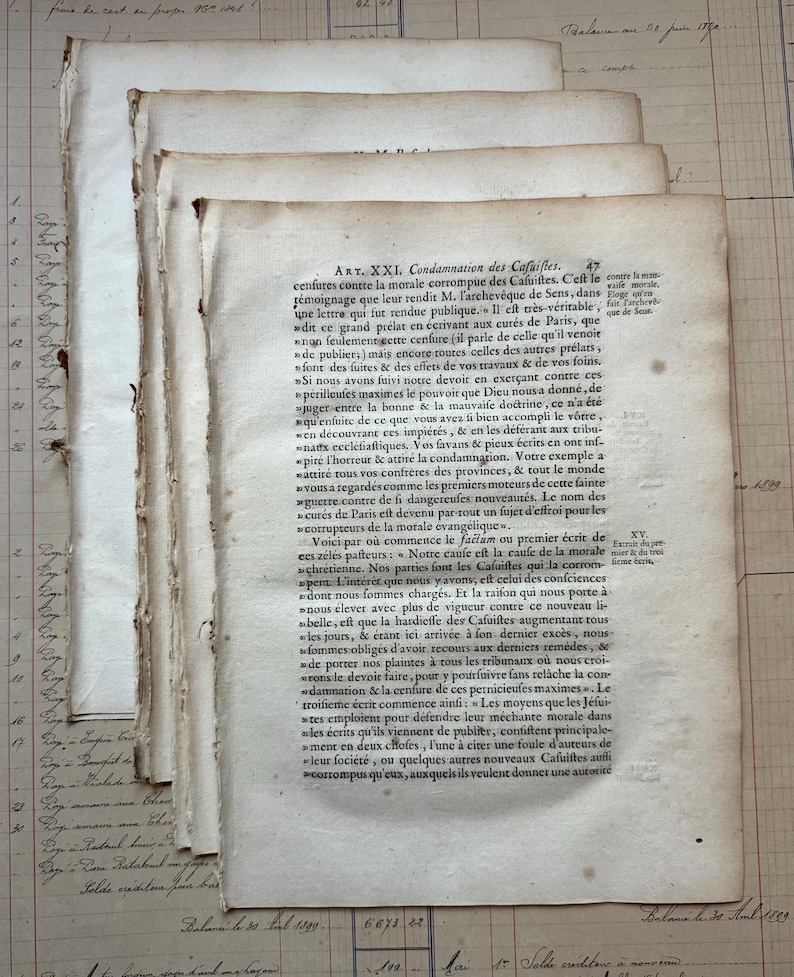 frais de cert. de propr. Nos 1248
42 40
Balance au 30 juin 1890
a ce compte
ART. XXI. Condamnation des Caſuiſtes. 47
cenſures contre la morale corrompue des Caſuiſtes. C'eſt le
témoignage que leur rendit M. l'archevêque de Sens, dans
une lettre qui fut rendue publique. « Il eſt très-véritable,
»dit ce grand prélat en écrivant aux curés de Paris, que
»non ſeulement cette cenſure (il parle de celle qu'il venoit
»de publier;) mais encore toutes celles des autres prélats,
»ſont des ſuites & des effets de vos travaux & de vos ſoins.
»Si nous avons ſuivi notre devoir en exerçant contre ces
»périlleuſes maximes le pouvoir que Dieu nous a donné, de
»juger entre la bonne & la mauvaiſe doctrine, ce n'a été
»qu'enſuite de ce que vous avez ſi bien accompli le vôtre,
»en découvrant ces impiétés, & en les déférant aux tribu-
»naux eccléſiaſtiques. Vos ſavans & pieux écrits en ont inſ-
»piré l'horreur & attiré la condamnation. Votre exemple a
»attiré tous vos confrères des provinces, & tout le monde
»vous a regardés comme les premiers moteurs de cette ſainte
»guerre contre de ſi dangereuſes nouveautés. Le nom des
»curés de Paris eſt devenu par-tout un ſujet d'effroi pour les
»corrupteurs de la morale évangélique».
contre la mau-
vaiſe morale.
Eloge qu'en
fait l'archevê-
que de Sens.
Voici par où commence le factum ou premier écrit de
ces zélés paſteurs : « Notre cauſe eſt la cauſe de la morale
»chrétienne. Nos parties ſont les Caſuiſtes qui la corrom-
»pent. L'intérêt que nous y avons, eſt celui des conſciences
»dont nous ſommes chargés. Et la raiſon qui nous porte à
»nous élever avec plus de vigueur contre ce nouveau li-
»belle, eſt que la hardieſſe des Caſuiſtes augmentant tous
»les jours, & étant ici arrivée à ſon dernier excès, nous
»ſommes obligés d'avoir recours aux derniers remèdes, &
»de porter nos plaintes à tous les tribunaux où nous croi-
»rons le devoir faire, pour y pourſuivre ſans relâche la con-
»damnation & la cenſure de ces pernicieuſes maximes». Le
troiſieme écrit commence ainſi : « Les moyens que les Jéſui-
»tes emploient pour défendre leur méchante morale dans
»les écrits qu'ils viennent de publier, conſiſtent principale-
»ment en deux choſes, l'une à citer une foule d'auteurs de
»leur ſociété, ou quelques autres nouveaux Caſuiſtes auſſi
»corrompus qu'eux, auxquels ils veulent donner une autorité
XV.
Extrait du pre-
mier & du troi
ſieme écrit.
1899
1
3 Payé
4
5 Payé
6 Payé
12 Payé
19 Payé
24 Payé
26 Payé
2 Payé
4 Payé
9 Payé
10 Payé
16 Payé
17 Payé à Eugène
Payé à
Payé à
23 Payé semaine aux
30 Payé semaine aux
Payé à
Payé à
Solde crediteur pour
Balance le 30 Avril 1899 6673 22
Balance le 30 Avril 1899
100 Mai 1er Solde crediteur à nouveau